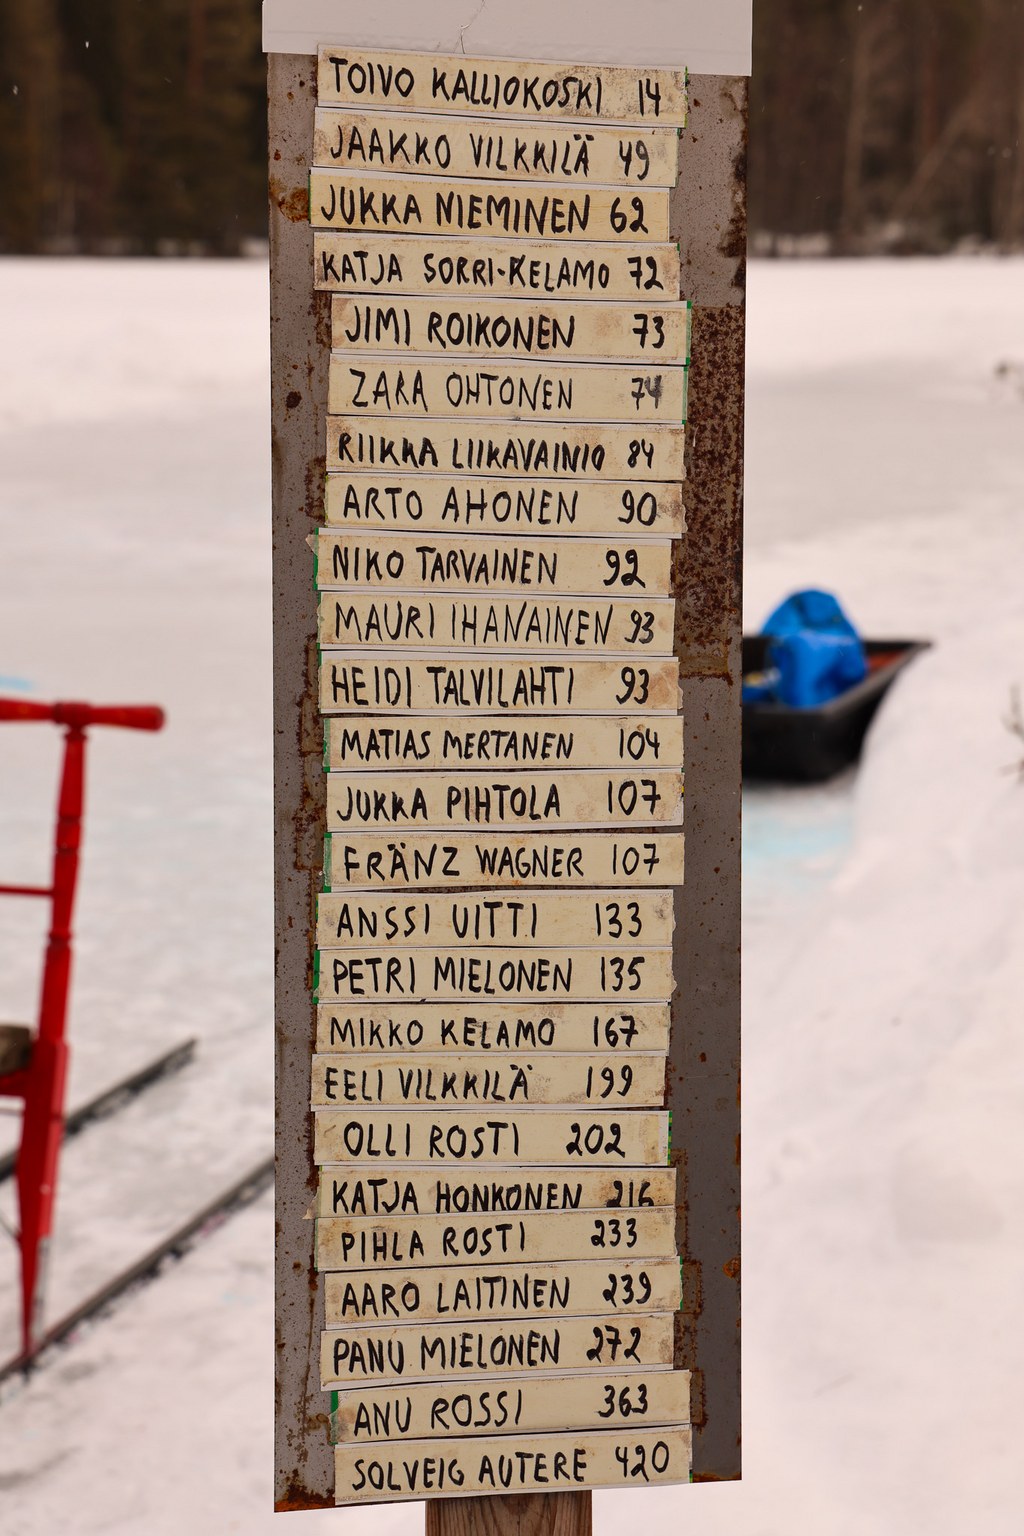 TOIVO KALLIOKOSKI 14
JAAKKO VILKKILÄ 49
JUKKA NIEMINEN 62
KATJA SORRI-KELAMO 72
JIMI ROIKONEN 73
ZARA OHTONEN 74
RIIKKA LIIKAVAINIO 84
ARTO AHONEN 90
NIKO TARVAINEN 92
MAURI IHANAINEN 93
HEIDI TALVILAHTI 93
MATIAS MERTANEN 104
JUKKA PIHTOLA 107
FRÄNZ WAGNER 107
ANSSI UITTI 133
PETRI MIELONEN 135
MIKKO KELAMO 167
EELI VILKKILÄ 199
OLLI ROSTI 202
KATJA HONKONEN 216
PIHLA ROSTI 233
AARO LAITINEN 239
PANU MIELONEN 272
ANU ROSSI 363
SOLVEIG AUTERE 420